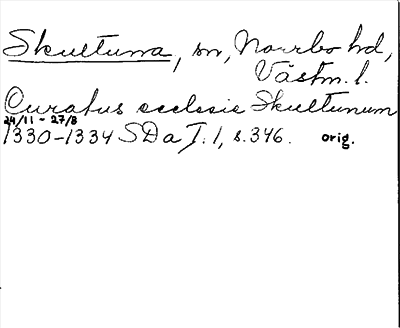 Skultuna, sn, Norrbo hd,
Västm. l.
Curatus ecclesie Skultunum
24/11 - 27/8
1330-1334 SDa I: 1, s. 346. orig.